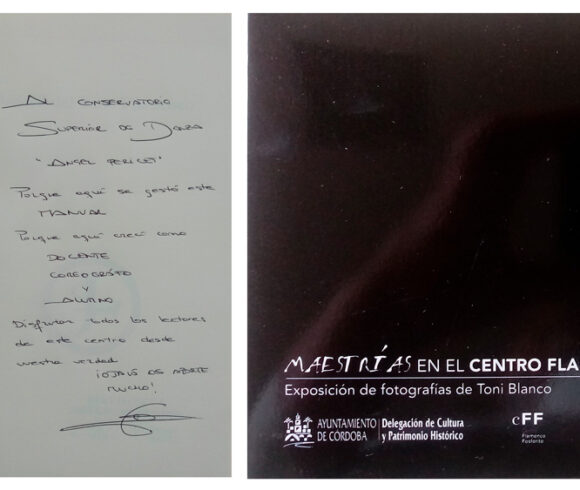 AL CONSERVATORIO
SUPERIOR DE DANZA
"ANGEL PERICET"
Porque aquí se gestó este
MANUAL
Porque aquí crecí como
DOCENTE
COREÓGRAFO
Y
ALUMNO
Disfrutar todos los lectores
de este centro desde
vuestra verdad
¡OJALÁ OS APORTE
MUCHO!
MAESTRÍAS EN EL CENTRO FLA
Exposición de fotografías de Toni Blanco
AYUNTAMIENTO
DE CÓRDOBA
Delegación de Cultura
y Patrimonio Histórico
cFF
Flamenco
Fosforito